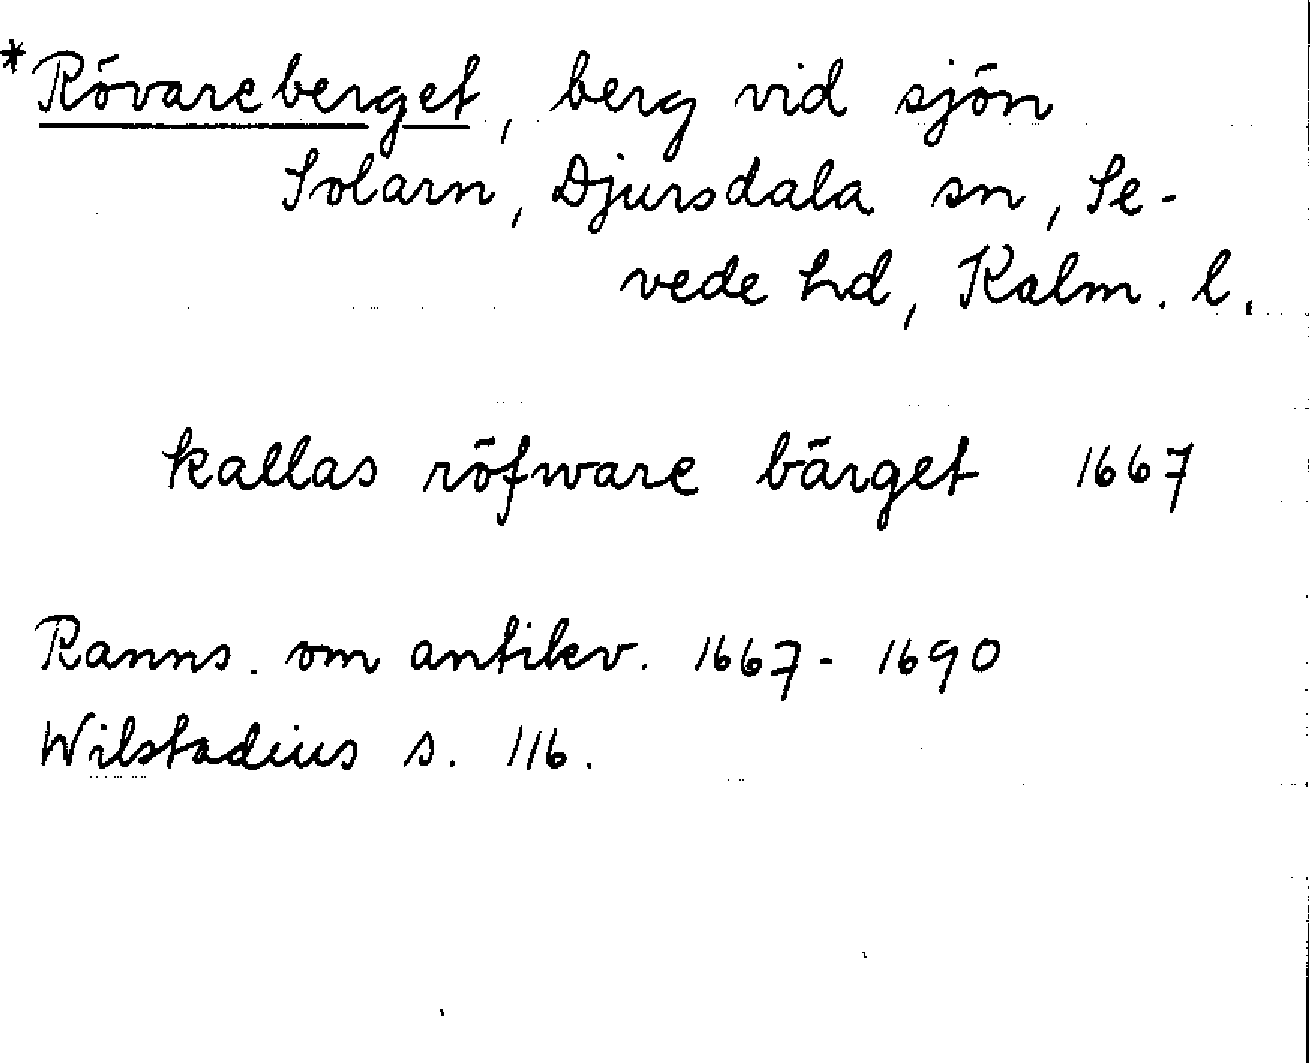 *Rövareberget, berg vid sjön
Solarn, Djursdala sn, Se-
vede hd, Kalm. l.
kallas röfware bärget 1667
Ranns. om antikv. 1667-1690
Wilstadius s. 116.